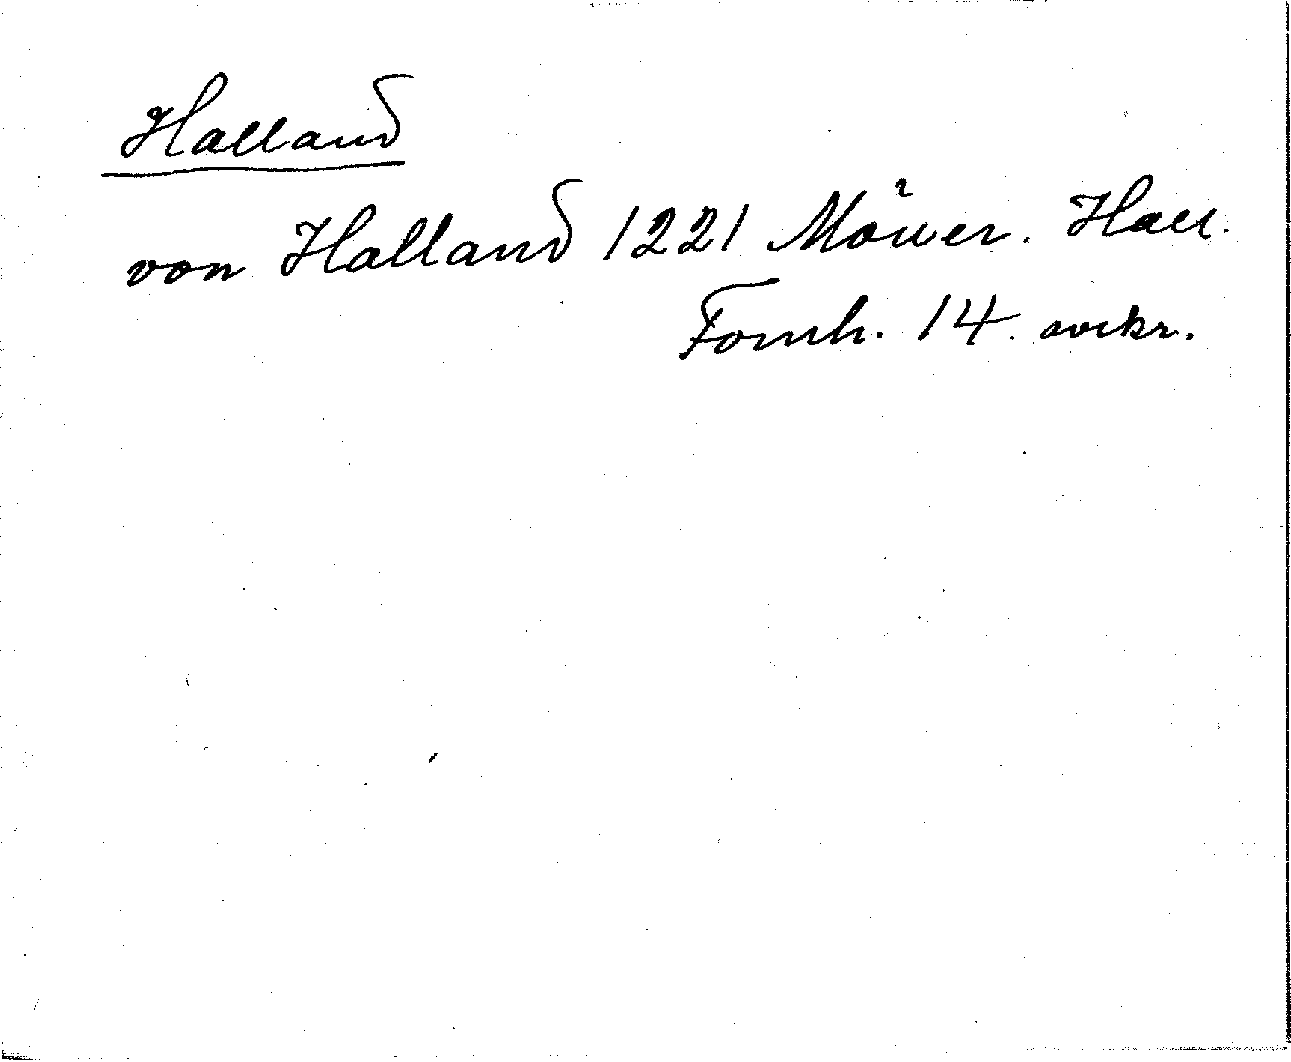 Halland
von Halland 1221 Möller. Hall.
Fornh. 14. avskr.